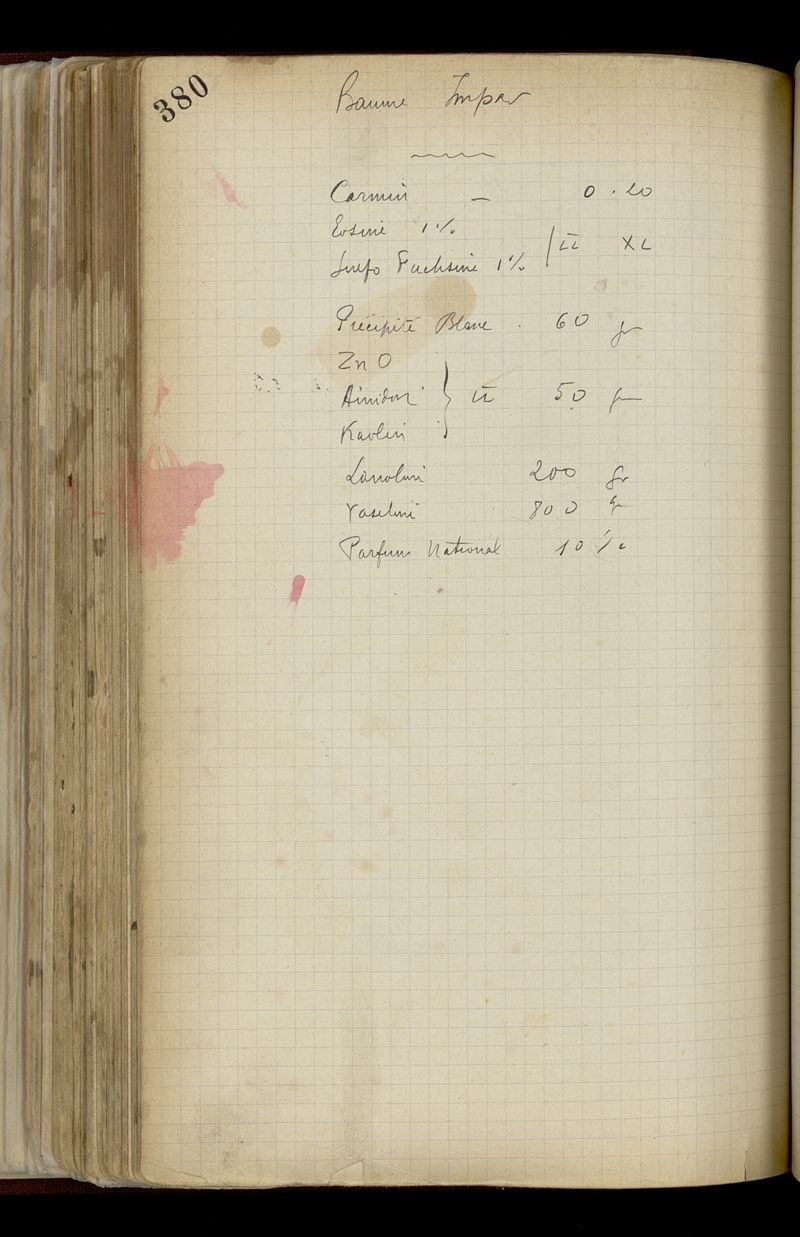 380
Baume Impar
Carmin — 0.20
Eosine 1%
āā XL
Sulfo Fuchsine 1%
Précipité Blanc . 60 gr
ZnO
Amidon āā 50 gr
Kaolin
Lanoline 200 gr
Vaseline 800 gr
Parfum National 10%